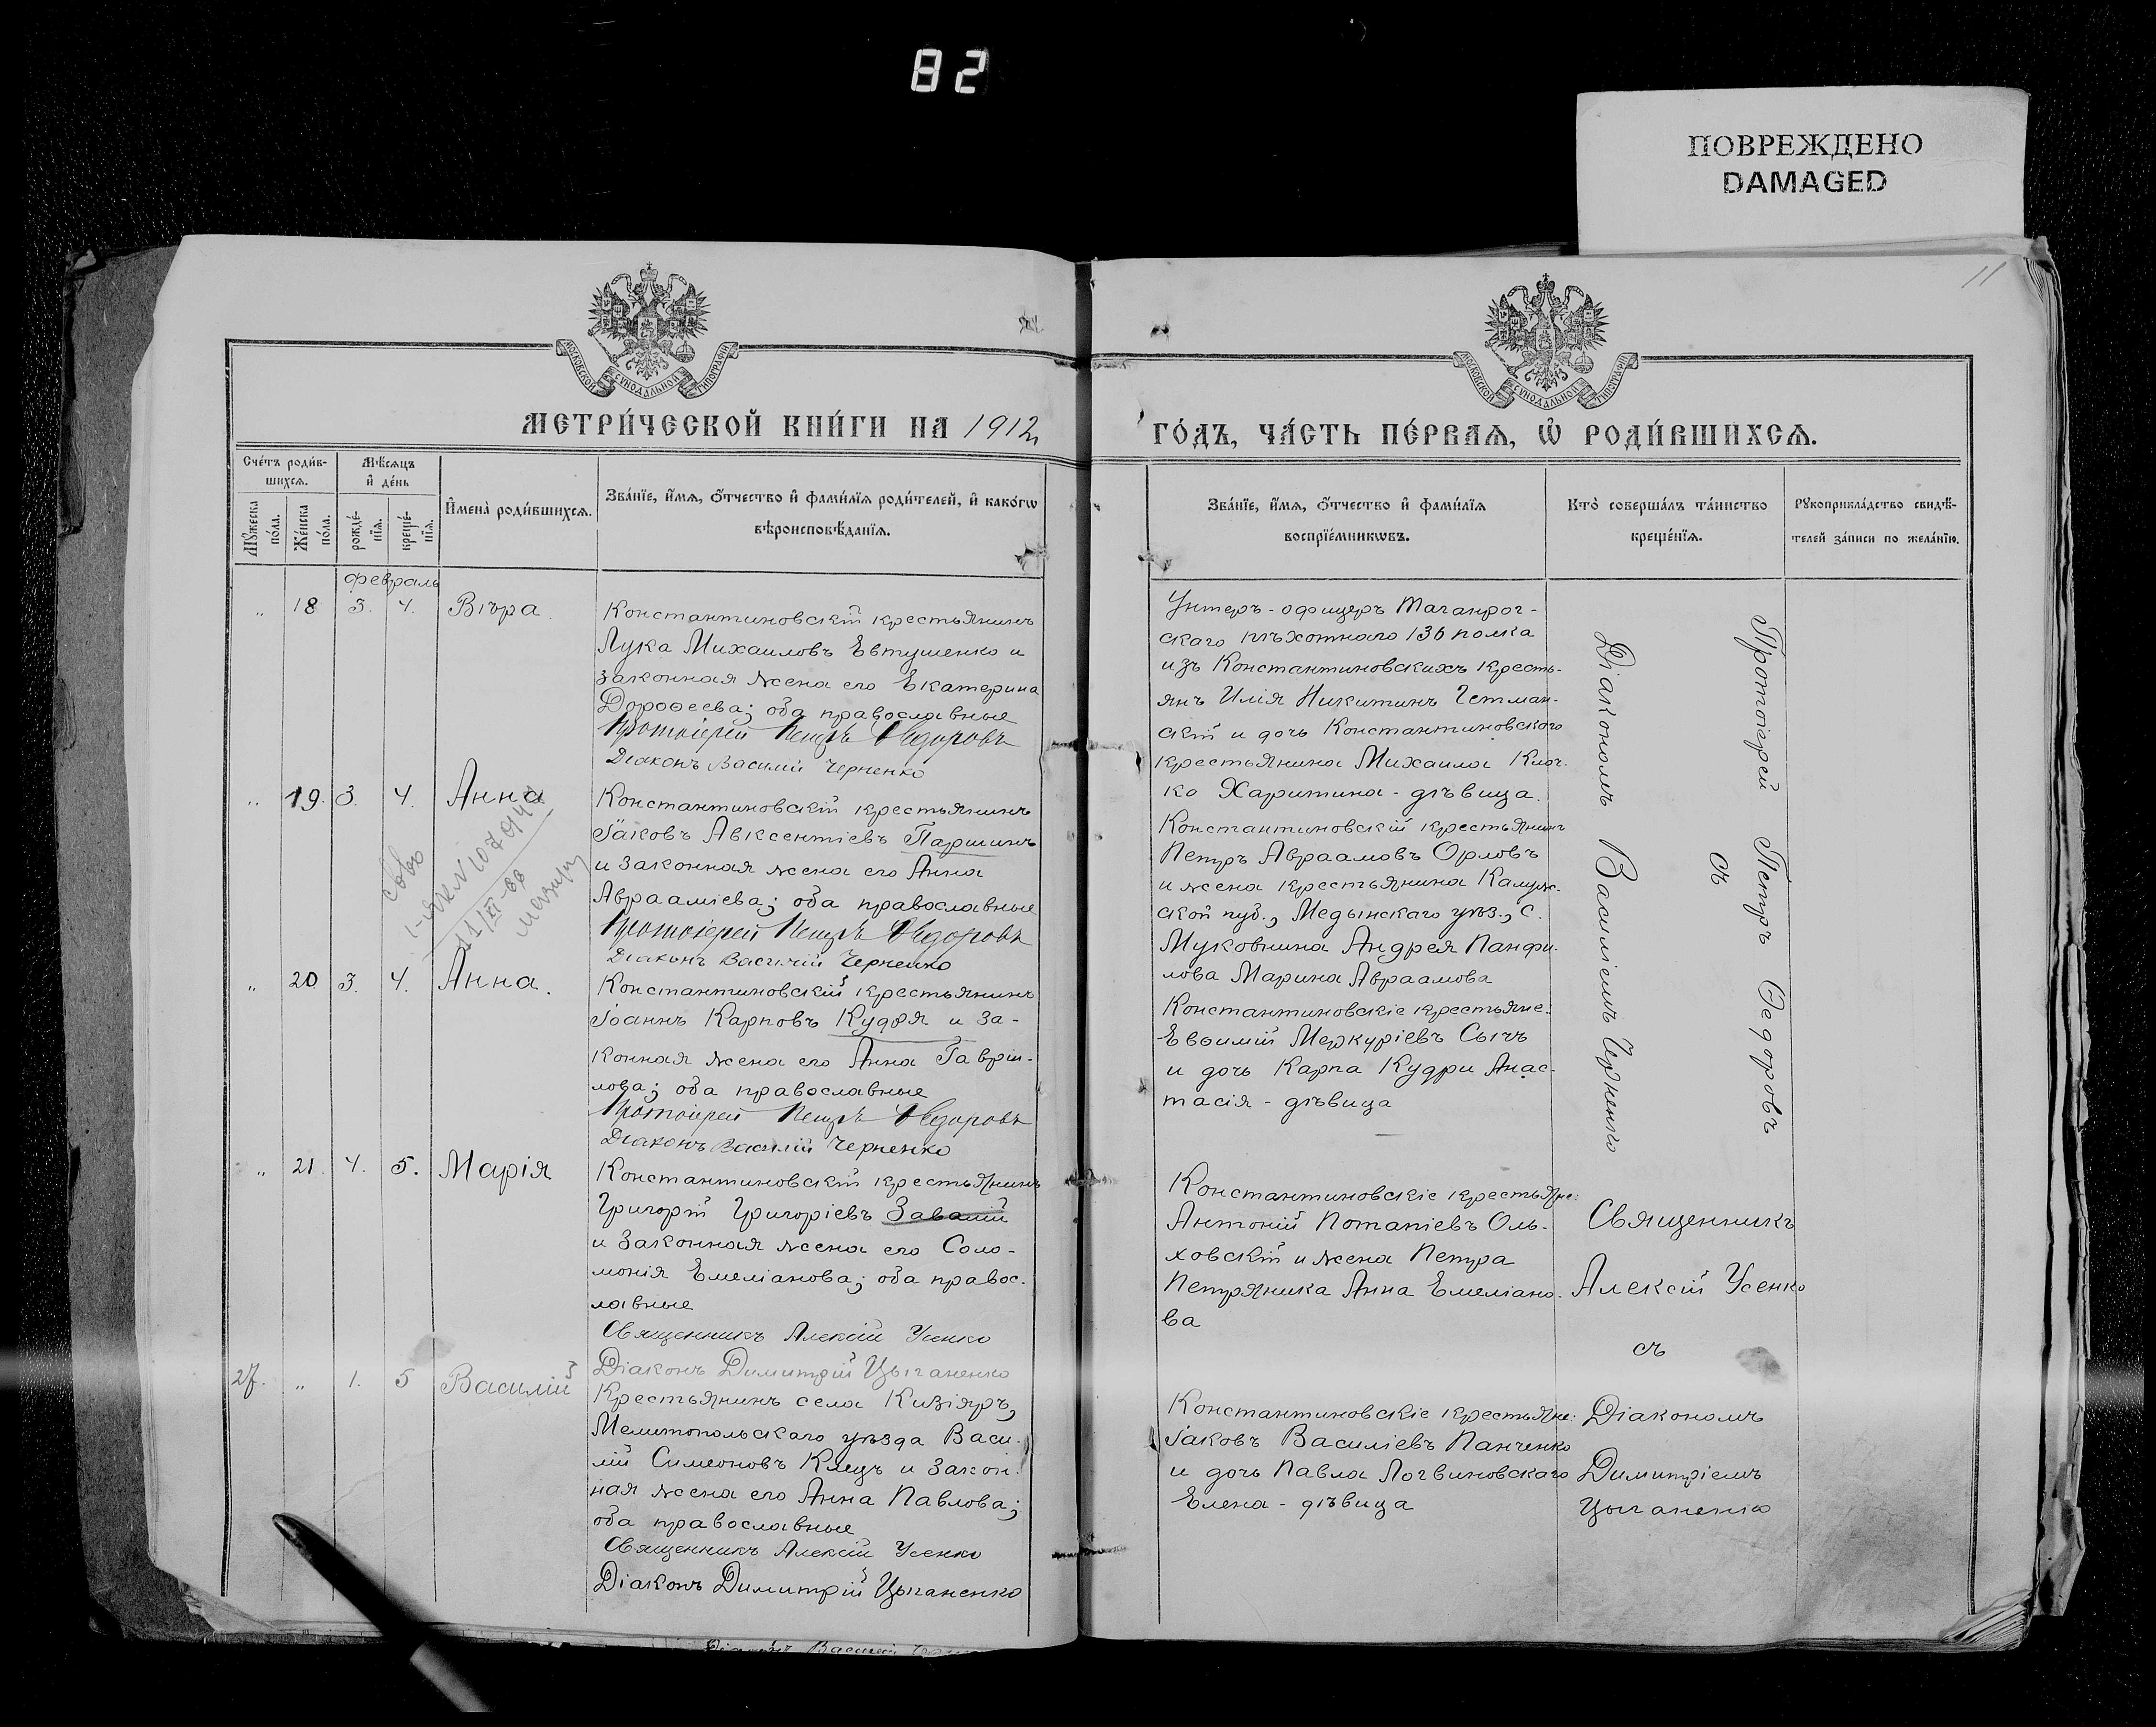 82
ПОВРЕЖДЕНО
DAMAGED
11
МОСКОВСКОЙ СУНОДАЛЬНОЙ ТИПОГРАФІИ
МОСКОВСКОЙ СУНОДАЛЬНОЙ ТИПОГРАФІИ
МЕТРИ́ЧЕСКОЙ КНИ́ГИ НА 1912
ГО́ДЪ, ЧА́СТЬ ПЕ́РВАѦ, Ѡ҆ РОДИ́ВШИХСѦ.
Сче́тъ роди́в-
шихсѧ.
Мꙋ́жеска по́ла.
Же́нска по́ла.
Мѣ́сѧцъ
и҆ де́нь
рожде́-
нїѧ.
креще́-
нїѧ.
И҆мена̀ роди́вшихсѧ.
Зва́нїе, и҆́мѧ, ѻ҆́тчество и҆ фами́лїѧ роди́телей, и҆ како́гѡ
вѣроисповѣ́данїѧ.
Зва́нїе, и҆́мѧ, ѻ҆́тчество и҆ фами́лїѧ
воспрїе́мникѡвъ.
Кто̀ соверша́лъ та́инство
креще́нїѧ.
Рꙋкоприкла́дство свидѣ́-
телей за́писи по жела́нїю.
Февраль
" 18 3. 4. Вѣра
Константиновскій крестьянинъ
Лука Михаиловъ Евтушенко и
законная жена его Екатерина
Дороѳеева; оба православные
Протоіерей Петръ Ѳедоровъ
Діаконъ Василій Черненко
Унтеръ-офицеръ Таганрог-
скаго пѣхотнаго 136 полка
изъ Константиновскихъ кресть-
янъ Илія Никитинъ Гетман-
скій и дочь Константиновскаго
крестьянина Михаила Клоч-
ко Харитина - дѣвица.
" 19. 3. 4. Анна
Константиновскій крестьянинъ
Іаковъ Авксентіевъ Паршинъ
и законная жена его Анна
Авраамiева; оба православные
Протоіерей Петръ Ѳедоровъ
Діаконъ Василій Черненко
Константиновскій крестьянинъ
Петръ Авраамовъ Орловъ
и жена крестьянина Калуж-
ской губ., Медынскаго уѣз., с.
Муковнина Андрея Панфи-
лова Марина Авраамова
" 20. 3. 4. Анна.
Константиновскій крестьянинъ
Іоаннъ Карповъ Кудря и за-
конная жена его Анна Гаврии-
лова; оба православные
Протоіерей Петръ Ѳедоровъ
Діаконъ Василій Черненко
Константиновскіе крестьяне:
Евѳимій Меркуріевъ Сычъ
и дочь Карпа Кудри Анас-
тасія - дѣвица
Протоіерей Петръ Ѳедоровъ
съ
Діакономъ Василіемъ Черненко
" 21. 4. 5. Марія
Константиновскій крестьянинъ
Григорій Григоріевъ Завалій
и законная жена его Соло-
монія Емеліанова; оба правос-
лавные
Священникъ Алексій Усенко
Діаконъ Димитрій Цыганенко
Константиновскіе крестьяне:
Антоній Потапіевъ Оль-
ховскій и жена Петра
Петряника Анна Емеліано-
ва
Священникъ
Алексій Усенко
съ
Діакономъ
Димитріемъ
Цыганенко
27. " 1. 5 Василій
Крестьянинъ села Кизіяръ,
Мелитопольскаго уѣзда Васи-
лій Симеоновъ Клецъ и закон-
ная жена его Анна Павлова;
оба православные
Священникъ Алексій Усенко
Діаконъ Димитрій Цыганенко
Константиновскіе крестьяне:
Іаковъ Василіевъ Панченко
и дочь Павла Логвиновскаго
Елена - дѣвица